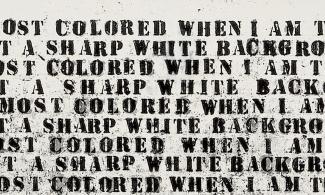 OST COLORED WHEN I AM T
T A SHARP WHITE BACKGRO
OST COLORED WHEN I AM T
T A SHARP WHITE BACKG
MOST COLORED WHEN I AM
T A SHARP WHITE BACKGRO
OST COLORED WHEN I AM
T A SHARP WHITE BACKGR
OST COLORED WHEN I AM T